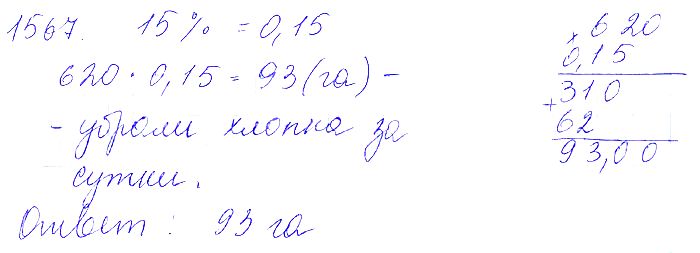 1567. 15% = 0,15
620 · 0,15 = 93 (га) –
– убрали хлопка за
сутки.
Ответ: 93 га
× 620
0,15
310
+
62
93,00